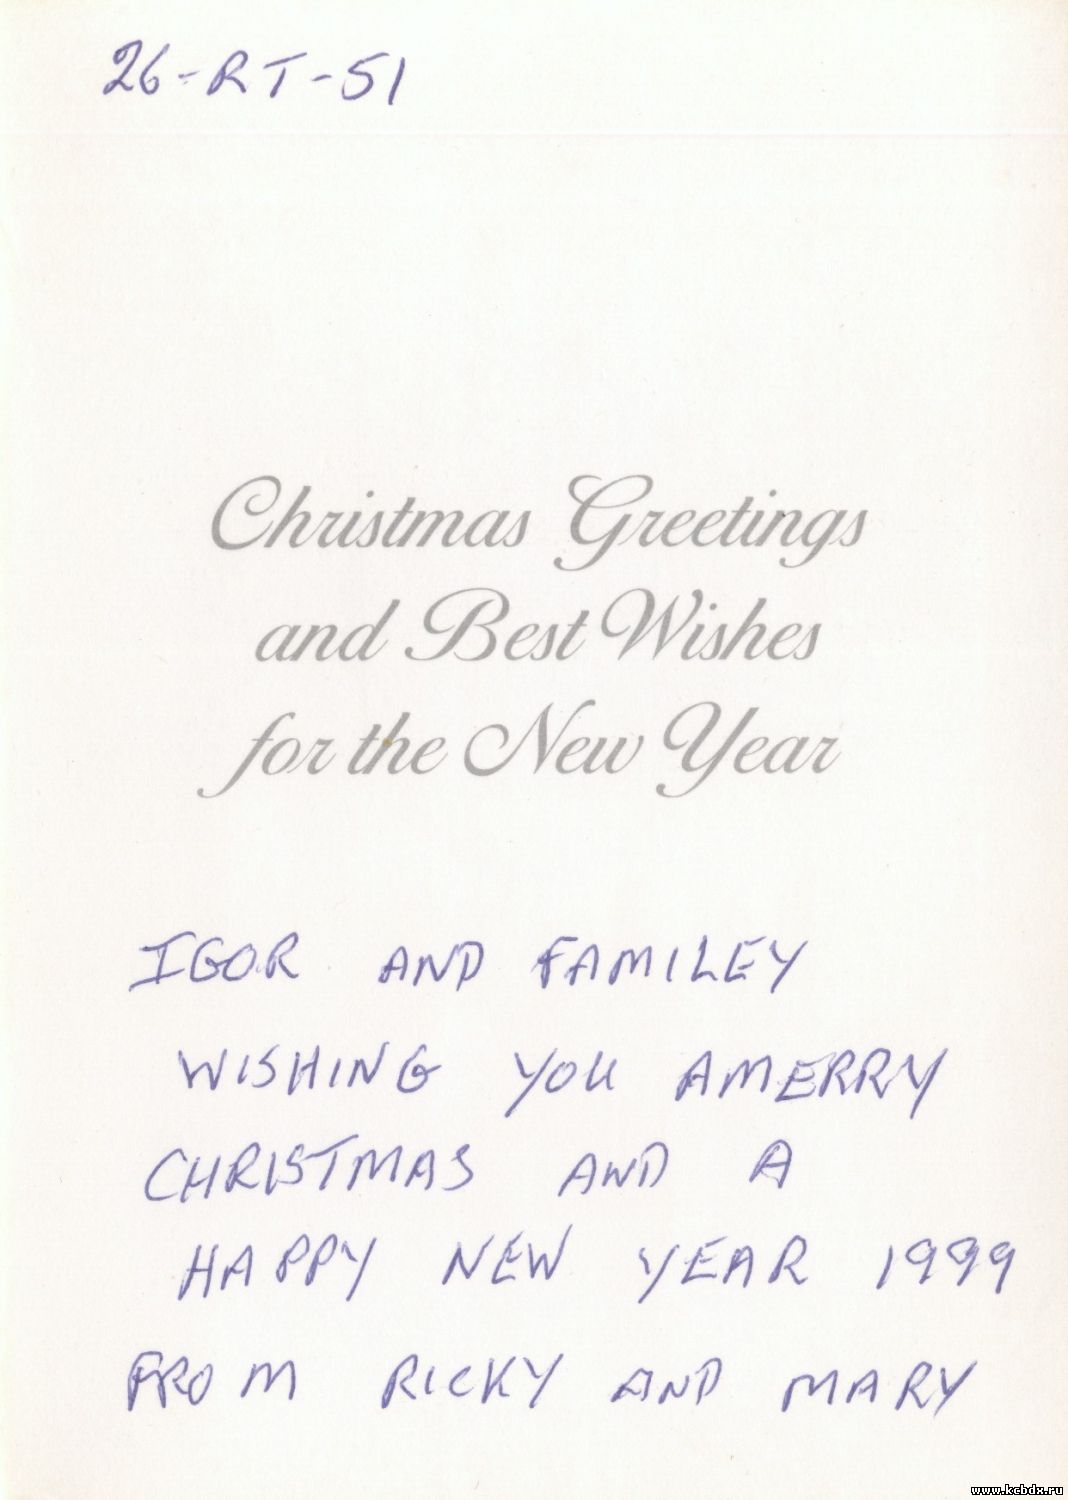 26-RT-51
Christmas Greetings
and Best Wishes
for the New Year
IGOR AND FAMILEY
WISHING YOU AMERRY
CHRISTMAS AND A
HAPPY NEW YEAR 1999
FROM RICKY AND MARY
www.kcbdx.ru